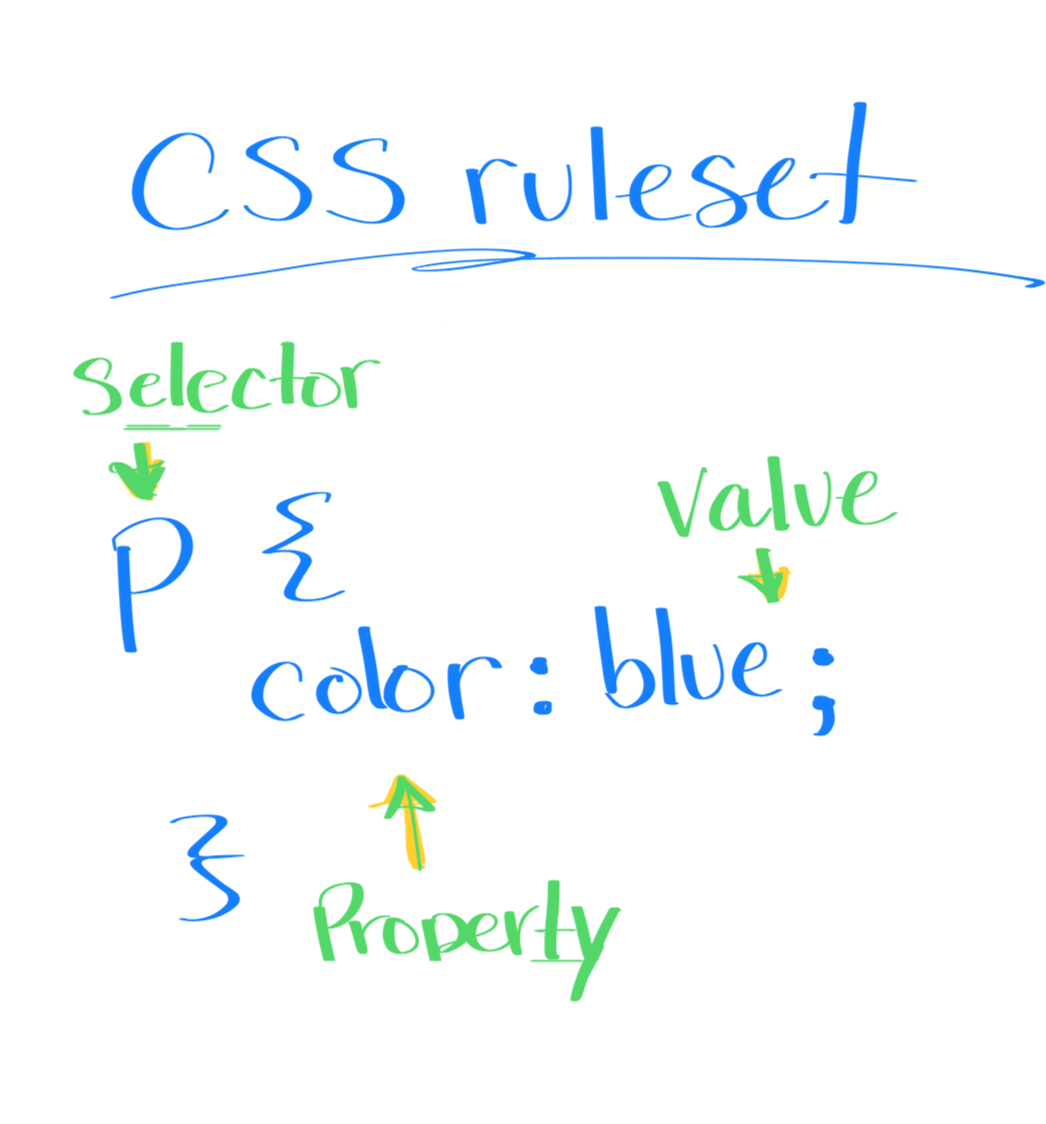 CSS ruleset
Selector
p {
Value
color: blue;
}
Property